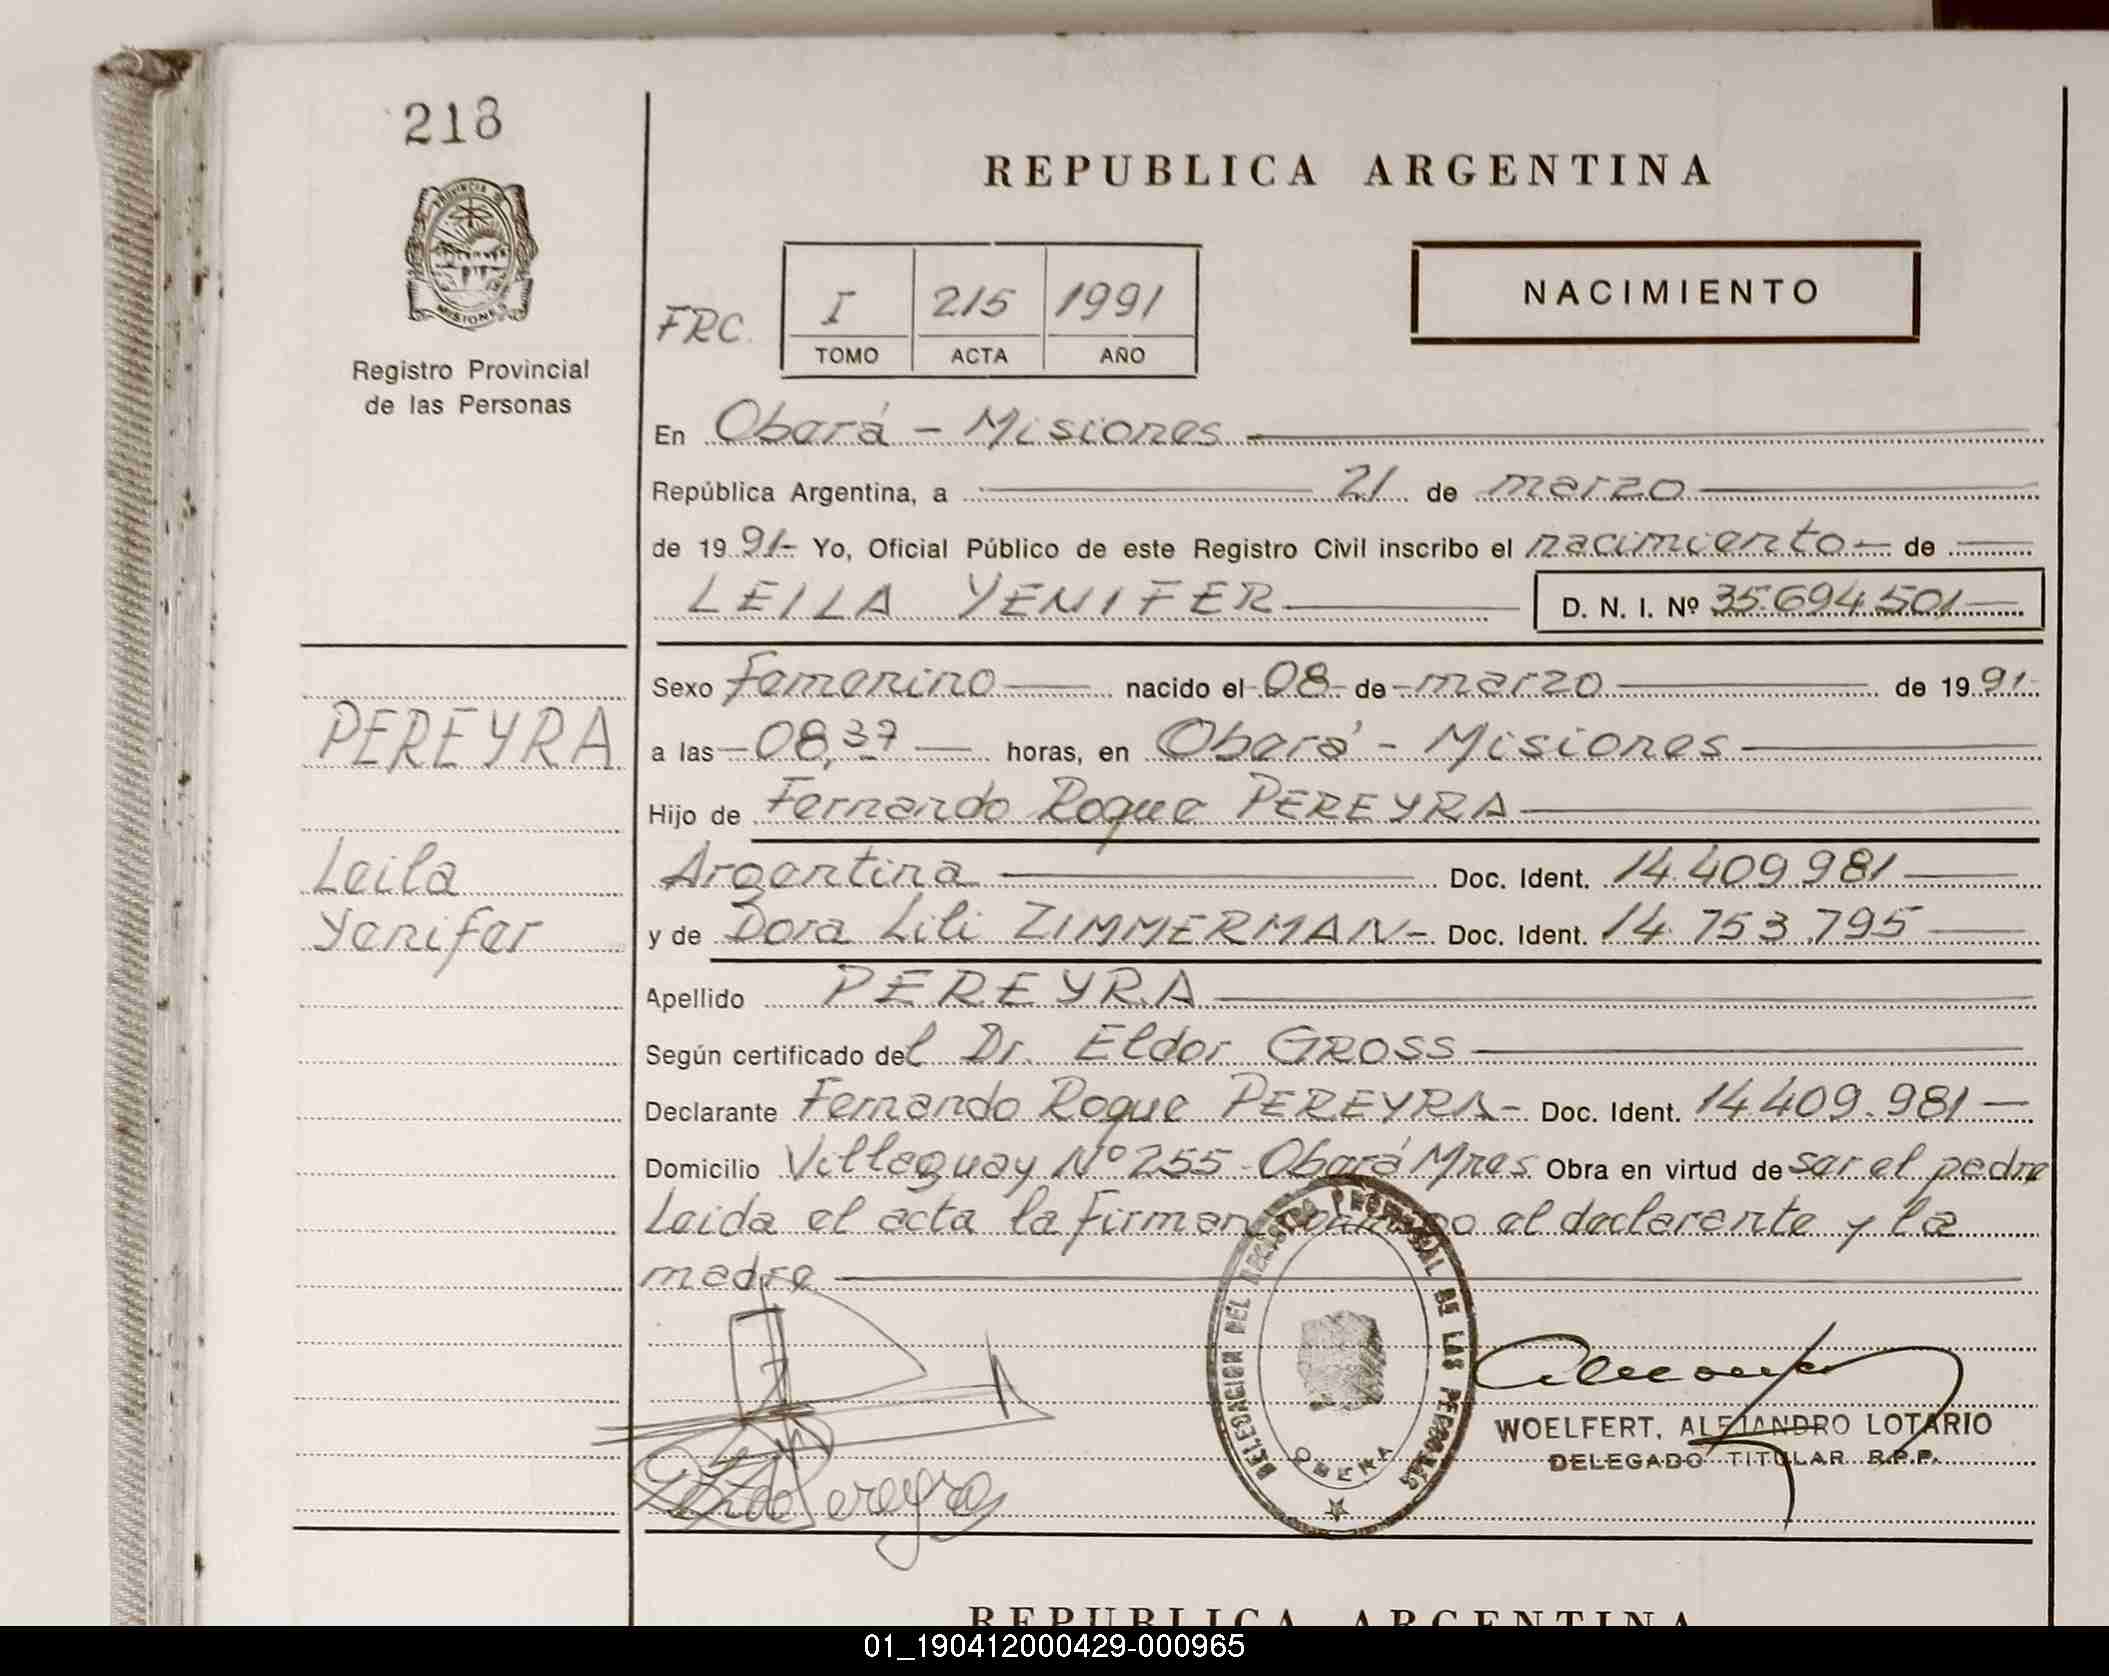 218
PROVINCIA DE
MISIONES
Registro Provincial
de las Personas
PEREYRA
Leila
Yenifer
REPUBLICA ARGENTINA
FRC. I 215 1991
TOMO ACTA AÑO
NACIMIENTO
En Oberá - Misiones
República Argentina, a 21 de marzo
de 19 91- Yo, Oficial Público de este Registro Civil inscribo el nacimiento - de
LEILA YENIFER D. N. I. Nº 35.694.501
Sexo Femenino nacido el 08 de marzo de 19 91
a las 08,37 horas, en Oberá - Misiones
Hijo de Fernando Roque PEREYRA
Argentina Doc. Ident. 14.409.981
y de Dora Lili ZIMMERMAN - Doc. Ident. 14.753.795
Apellido PEREYRA
Según certificado del Dr. Eldor GROSS
Declarante Fernando Roque PEREYRA - Doc. Ident. 14.409.981 -
Domicilio Villaguay Nº 255 - Oberá Mnes Obra en virtud de ser el padre
Leida el acta la firman conmigo el declarante y la
madre
DELEGACION DEL REGISTRO PROVINCIAL DE LAS PERSONAS
OBERA
WOELFERT, ALEJANDRO LOTARIO
DELEGADO TITULAR R.P.P.
REPUBLICA ARGENTINA
01_190412000429-000965